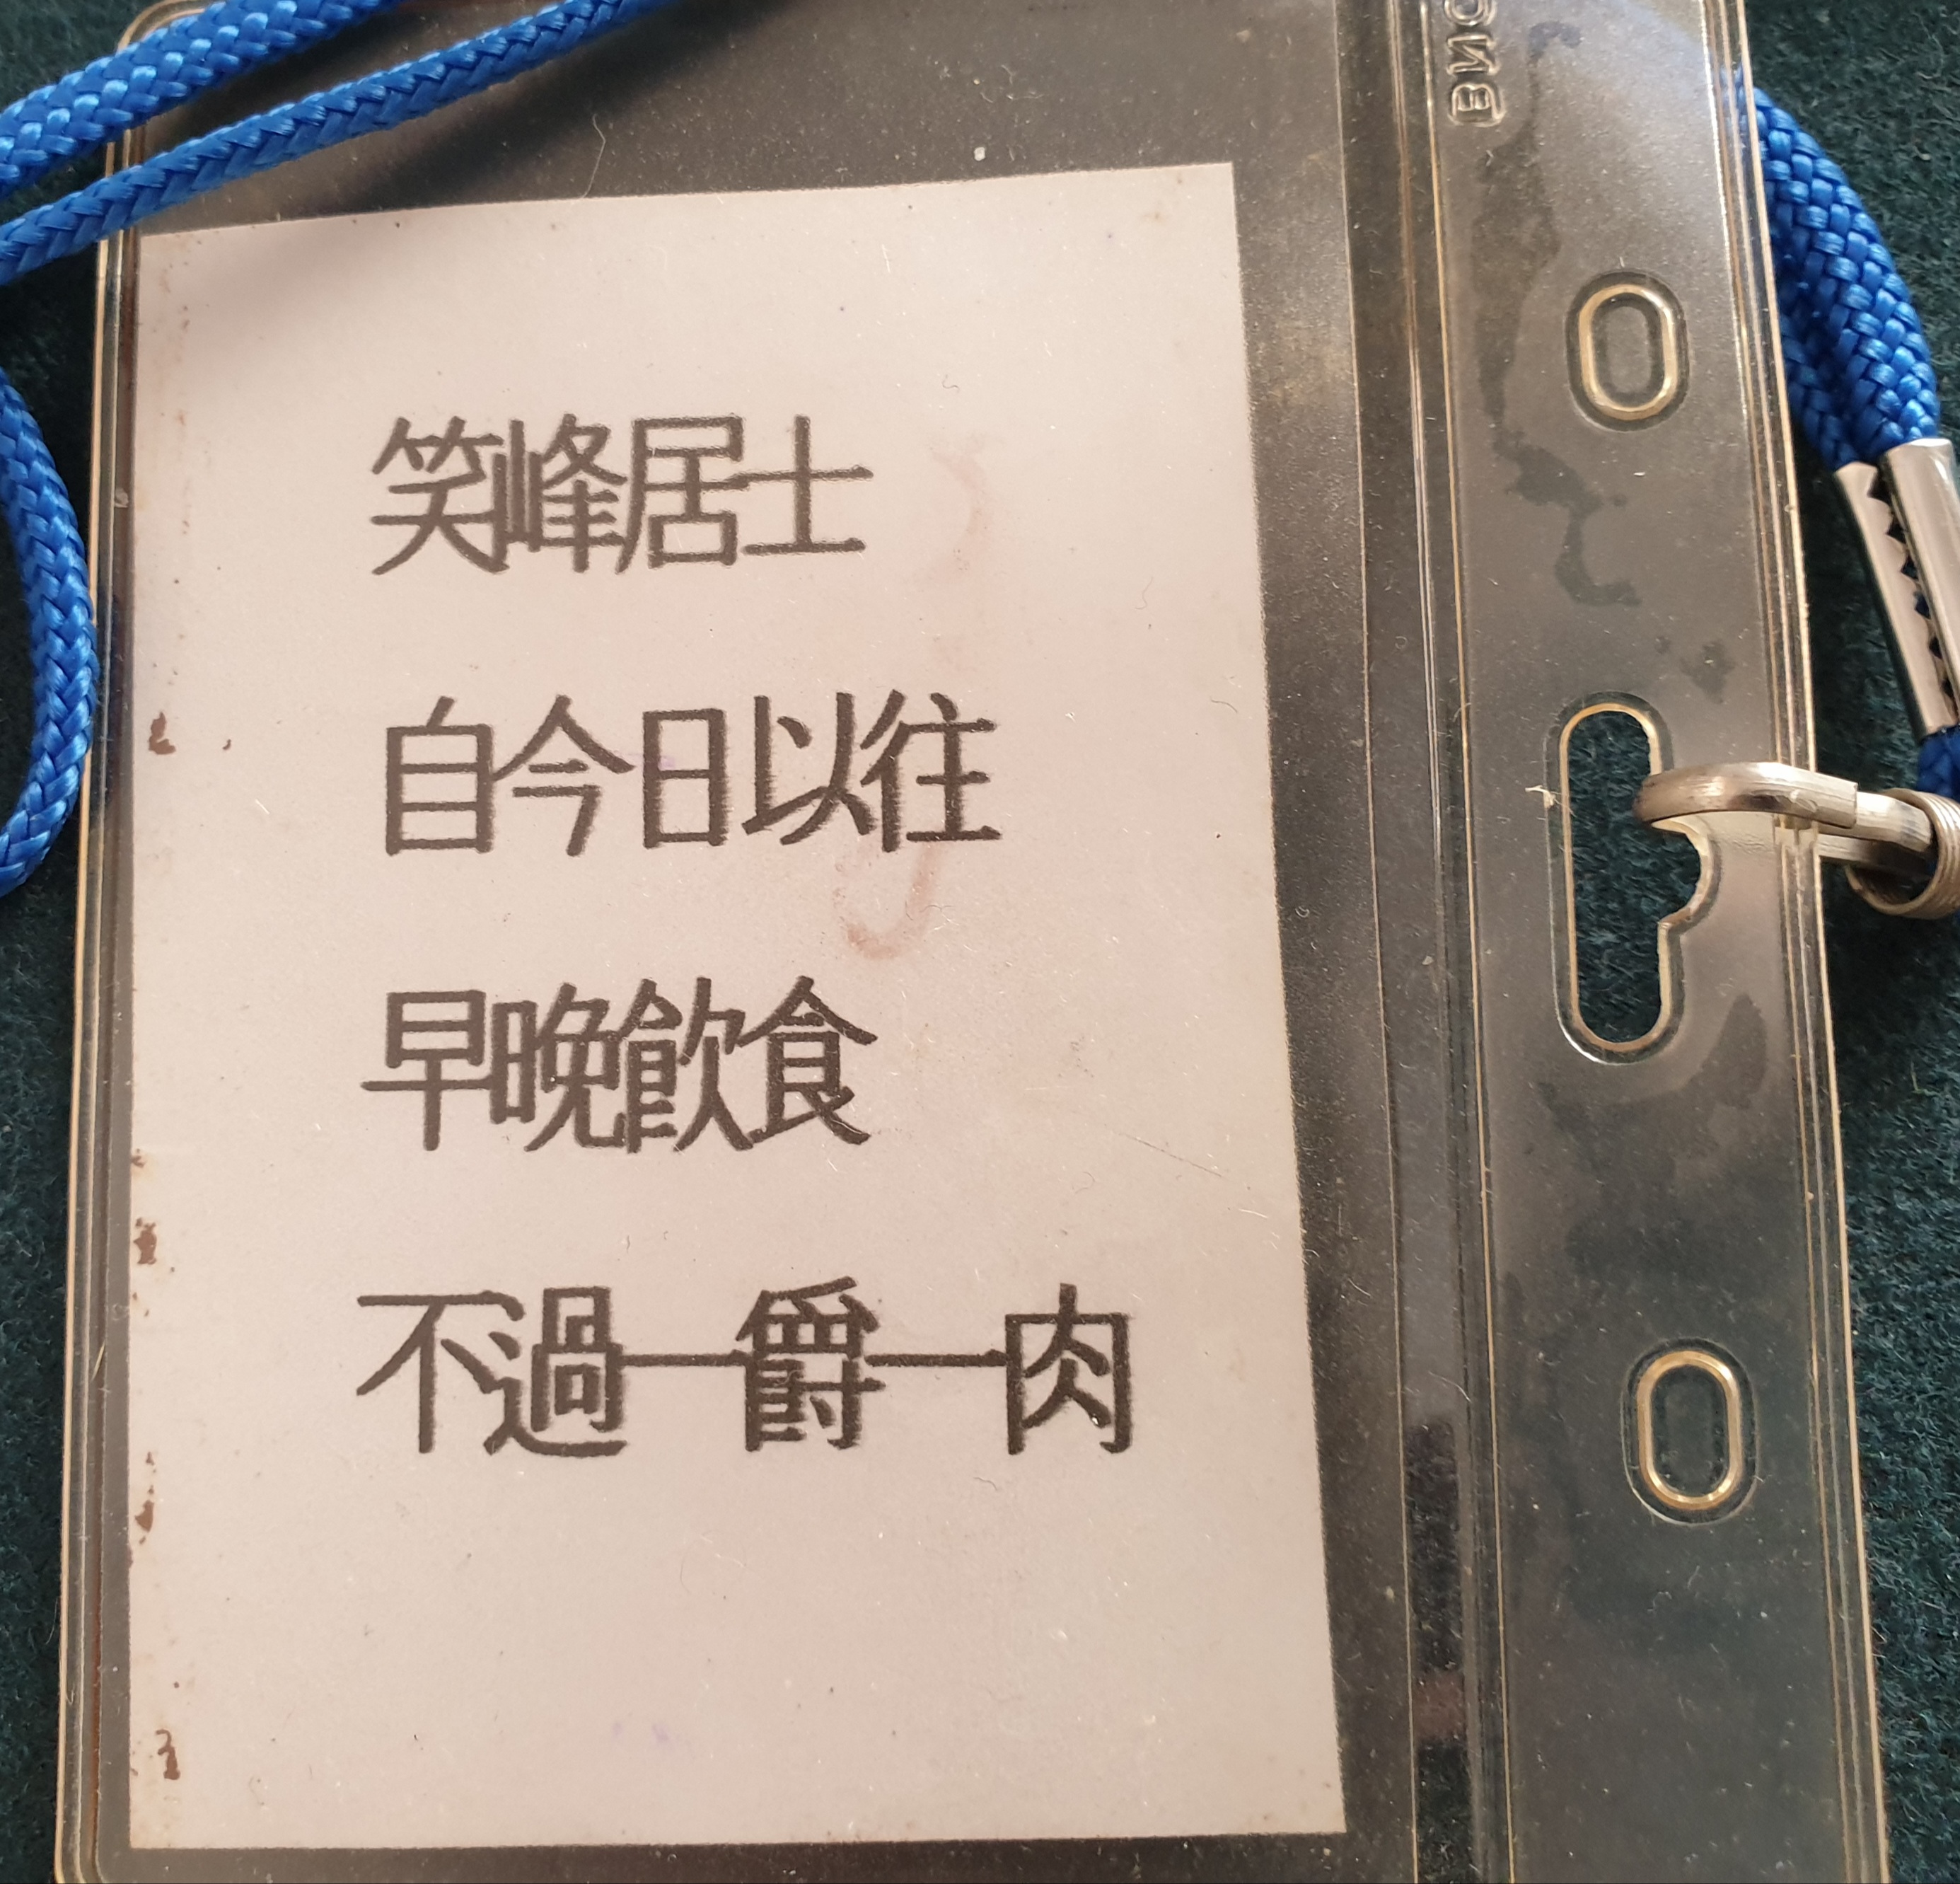 笑峰居士
自今日以往
早晚飲食
不過一爵一肉